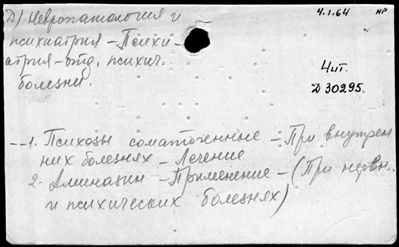 Д) Невропатология и
4.1.64
НР
психиатрия – Психи-
атрия – отд. психич.
болезни.
Чит.
D 30295.
-- 1. Психозы соматогенные – При внутрен
них болезнях – Лечение
2. Аминазин – Применение – (При нервн.
и психических болезнях)